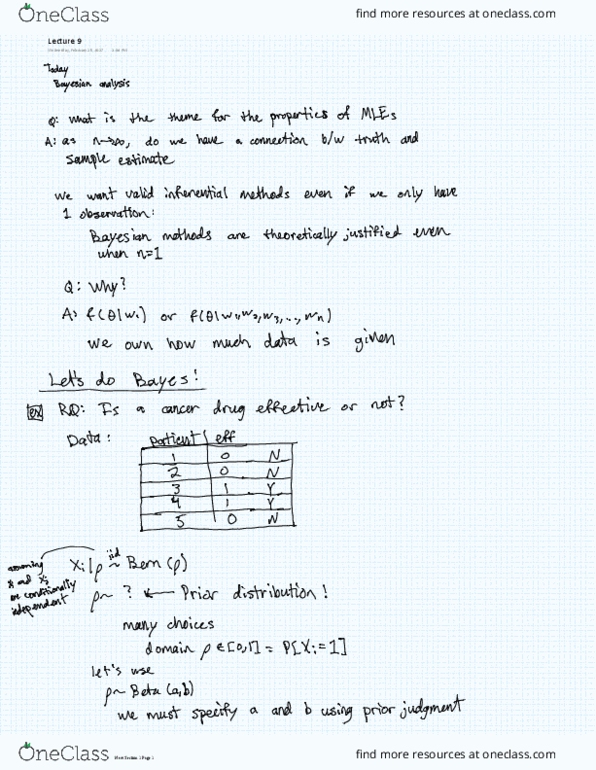 OneClass
find more resources at oneclass.com
Lecture 9
Today
Bayesian analysis
Q: what is the theme for the properties of MLEs
A: as n→∞, do we have a connection b/w truth and
sample estimate
we want valid inferential methods even if we only have
1 observation:
Bayesian methods are theoretically justified even
when n=1
Q: Why?
A: f(θ|w₁) or f(θ|w₁,w₂,w₃,...,wₙ)
we own how much data is given
Let's do Bayes!
ex RQ: Is a cancer drug effective or not?
Data:
patient eff
1 0 N
2 0 N
3 1 Y
4 1 Y
5 0 N
assuming
Xi and Xj
are conditionally
independent
Xi|p iid ~ Bern(p)
p~ ? ← Prior distribution!
many choices
domain p ∈ [0,1] = P[Xi=1]
let's use
p~ Beta(a,b)
we must specify a and b using prior judgment
OneClass
Page 1
find more resources at oneclass.com